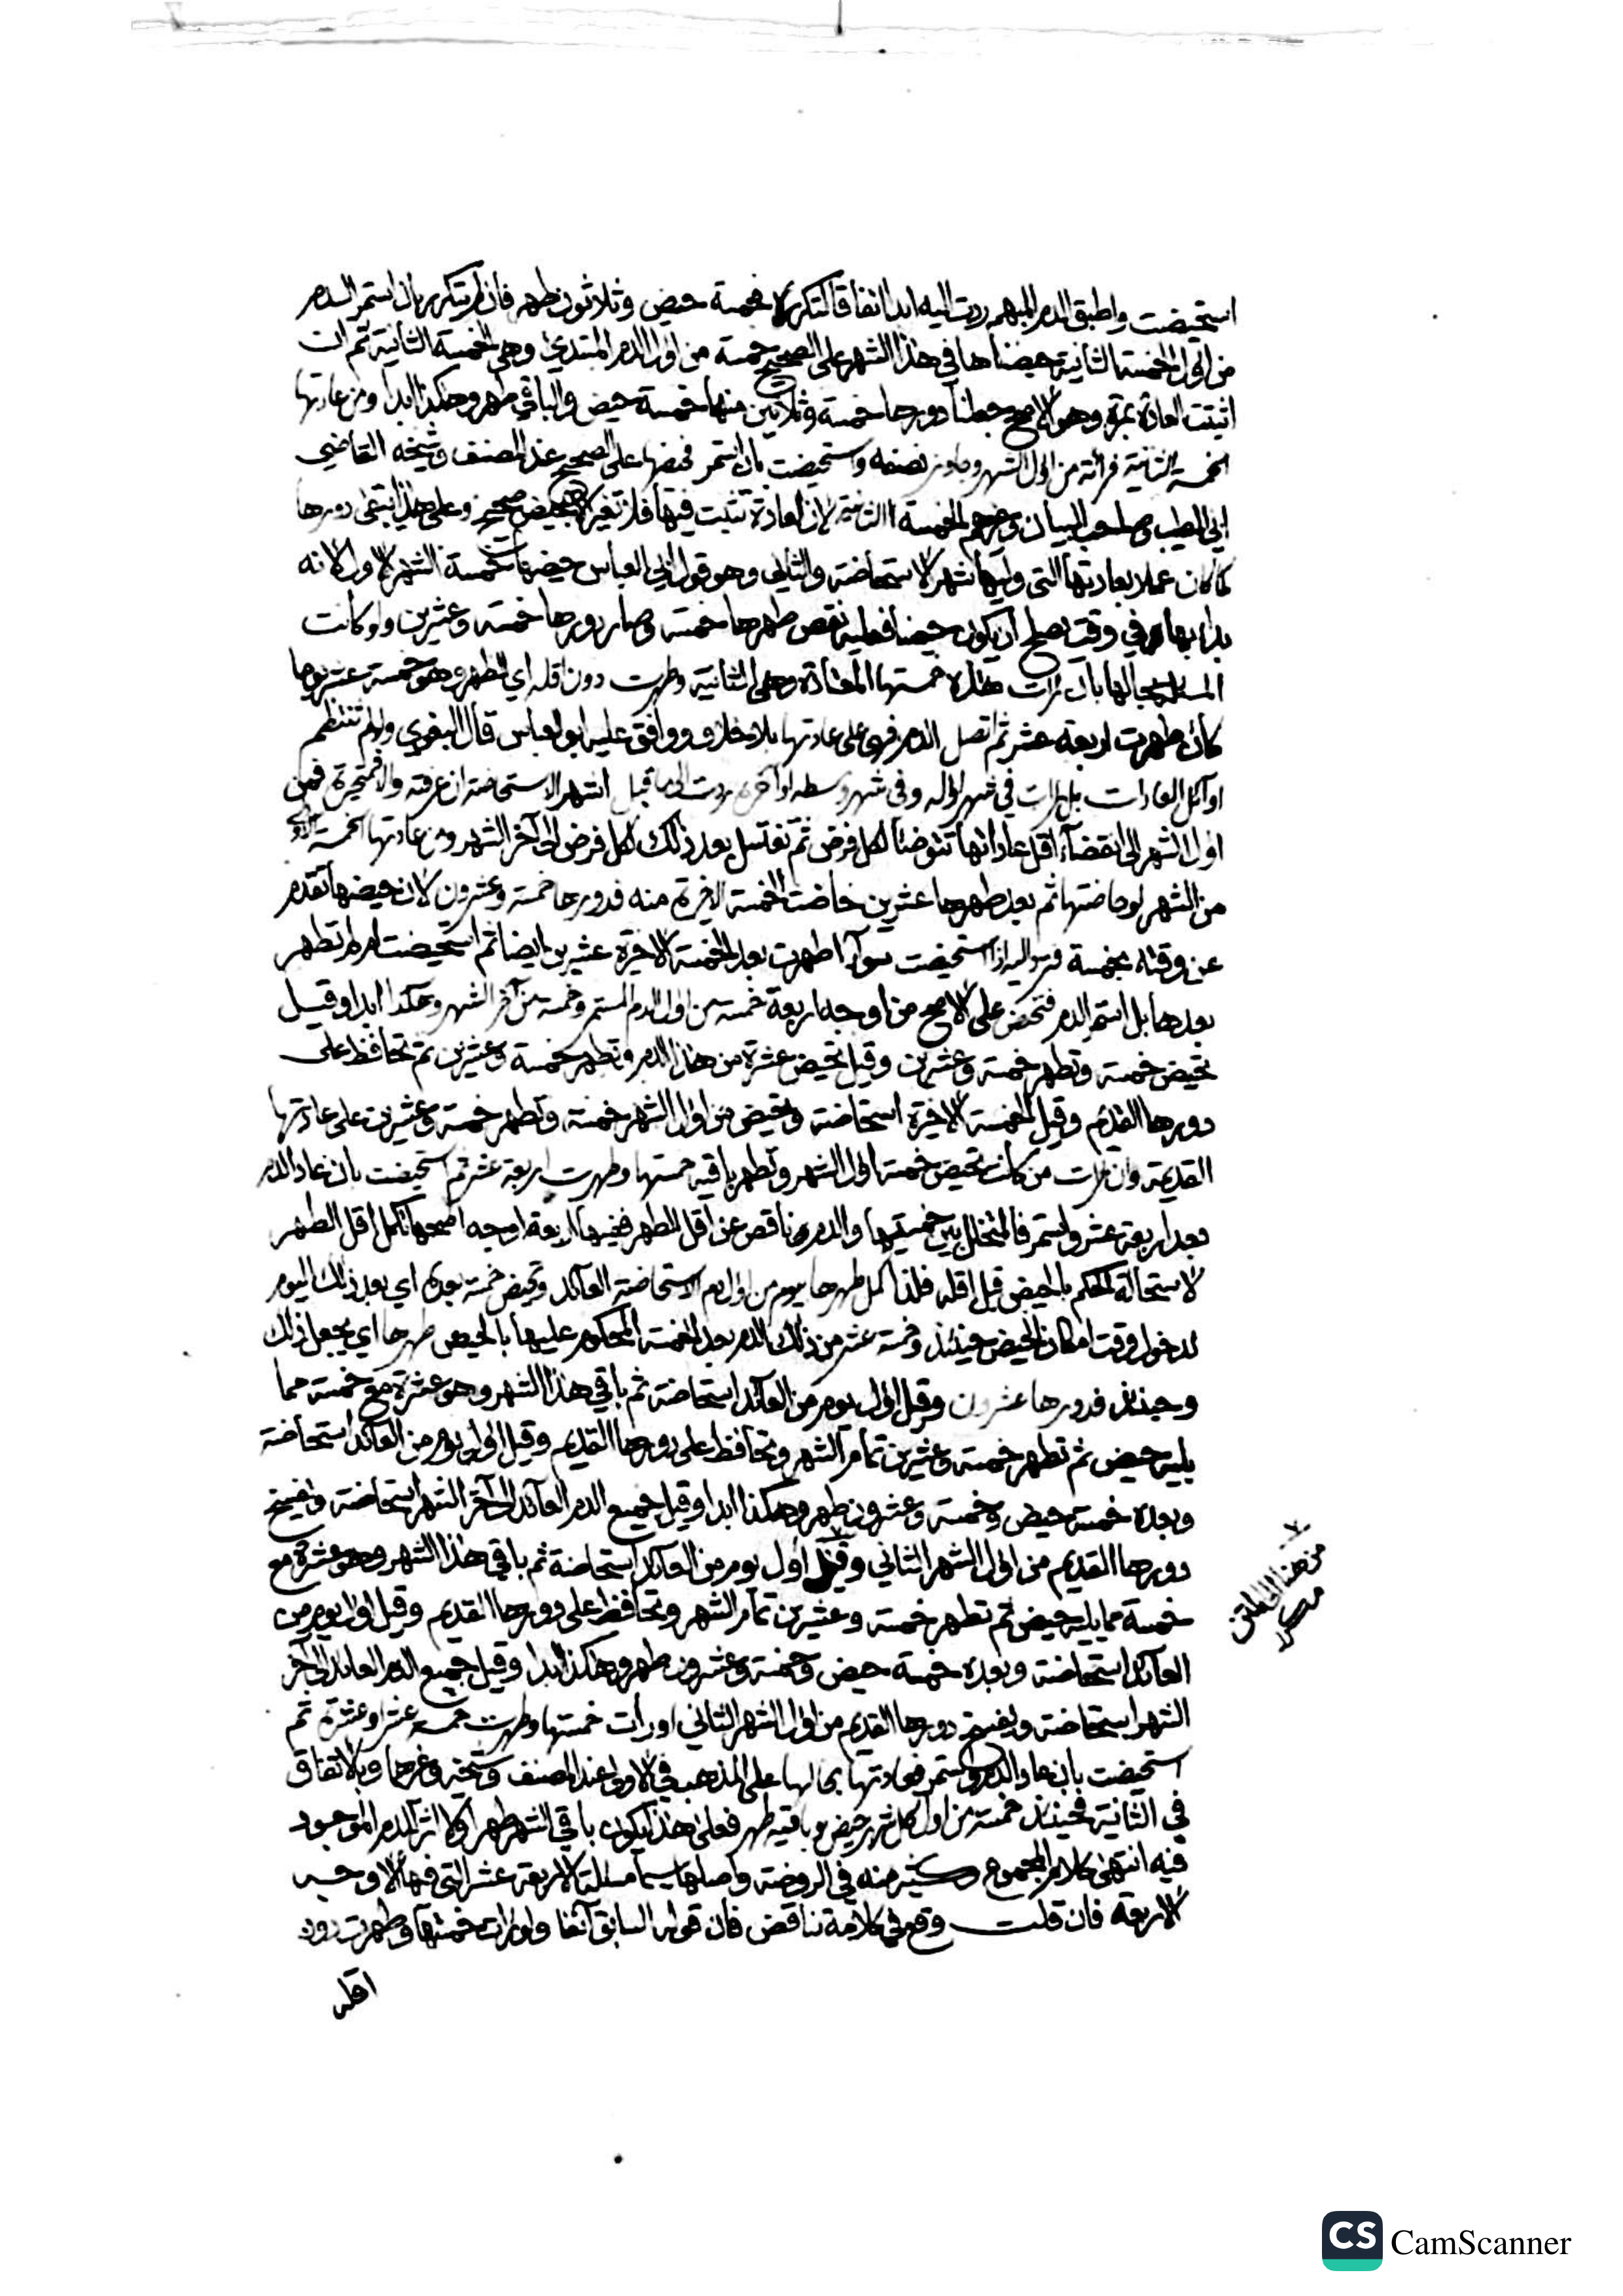 استحيضت واطبق الدم المبهم ردت اليه ابدا اتفاقا لتكرره فخمسة حيض وثلاثون طهر فان لم يتكرر بان استمر الدم
من اول الخمسة الثانية حيضناها في هذا الشهر على الصحيح خمسة من اول الدم المبتدئ وهي الخمسة الثانية ثم ان
اثبتت العادة بمرة وهو الاصح جعلنا دورها خمسة وثلاثين منها خمسة حيض والباقي طهر وهكذا ابدا ومن عادتها
الخمسة الثانية فرأته من اول الشهر وجاوز نصفه واستحيضت بان استمر فحيضها على الصحيح عند المصنف وشيخه القاضي
ابي الطيب وصاحب البيان وغيرهم الخمسة الثانية لان العادة تثبت فيها فلا تغير الا بحيض صحيح وعلى هذا يبقى دورها
كما كان عملا بعادتها التي وليها شهر الاستحاضة والثاني وهو قول ابي العباس حيضها خمسة الشهر الاول لانه
بدأ بها في وقت يصلح ان يكون حيضا فعليه نقص طهرها خمسة وصار دورها خمسة وعشرين ولو كانت
بحالها بان رات هذه خمستها المعتادة وهي الثانية وطهرت دون اقله اي الطهر وهو خمسة عشر يوما
كأن طهرت اربعة عشر ثم اتصل الدم فهي على عادتها بلا خلاف ووافق عليه ابو العباس قال البغوي ولو لم تنتظم
اوائل العادات بل رات في شهر اوله وفي شهر وسطه او آخره ردت الى ما قبل شهر الاستحاضة ان عرفته والا فمتحيرة فمن
اول الشهر الى انقضاء اقل عاداتها تتوضأ لكل فرض ثم تغتسل بعد ذلك لكل فرض الى آخر الشهر ومن عادتها الخمسة الاولى
من الشهر لو حاضتها ثم بعد طهرها عشرين حاضت الخمسة الاخيرة منه فدورها خمسة وعشرون لان حيضها تقدم
عن وقته بخمسة فترد اليه اذا استحيضت سوآء اطهرت بعد الخمسة الاخيرة عشرين ايضا ثم استحيضت ام لم تطهر
بعدها بل استمر الدم فتحيض على الاصح من اوجه اربعة خمسة من اول الدم المستمر وخمسة من آخر الشهر وهكذا ابدا وقيل
تحيض خمسة وتطهر خمسة وعشرين وقيل تحيض عشرة من هذا الدم وتطهر خمسة وعشرين ثم تحافظ على
دورها القديم وقيل الخمسة الاخيرة استحاضة وتحيض من اول الشهر خمسة وتطهر خمسة وعشرين على عادتها
القديمة وان رات من كانت تحيض خمسة اول الشهر وتطهر باقيه خمستها وطهرت اربعة عشر ثم استحيضت بان عاد الدم
بعد اربعة عشر واستمر فالمتخلل بين خمستها والدم ناقص عن اقل الطهر ففيها اربعة اوجه اصحها تكمل اقل الطهر
لاستحالة الحكم بالحيض قبل اقله فلذا كمل طهرها بيوم من اول دم الاستحاضة العائد وتحيض خمسة بعده اي بعد ذلك اليوم
لدخول وقت امكان الحيض حينئذ وخمسة عشر من ذلك الدم بعد الخمسة المحكوم عليها بالحيض طهرها اي يجعل ذلك
وحينئذ فدورها عشرون وقيل اول يوم من العائد استحاضة ثم باقي هذا الشهر وهو عشرة مع خمسة مما
يليه حيض ثم تطهر خمسة وعشرين تمام الشهر وتحافظ على دورها القديم وقيل اول يوم من العائد استحاضة
وبعده خمسة حيض وخمسة وعشرون طهر وهكذا ابدا وقيل جميع الدم العائد الى آخر الشهر استحاضة وتفتتح
دورها القديم من اول الشهر الثاني وقيل اول يوم من العائد استحاضة ثم باقي هذا الشهر وهو عشرة مع
خمسة مما يليه حيض ثم تطهر خمسة وعشرين تمام الشهر وتحافظ على دورها القديم وقيل اول يوم من
العائد استحاضة وبعده خمسة حيض وخمسة وعشرون طهر وهكذا ابدا وقيل جميع الدم العائد الى آخر
الشهر استحاضة وتفتتح دورها القديم من اول الشهر الثاني او رأت خمستها وطهرت خمسة عشر او عشرة ثم
استحيضت بان عاد الدم واستمر فعادتها بحالها على المذهب في الاولى عند المصنف وشيخه وغيرهما وبالاتفاق
في الثانية فحينئذ خمسة من اول كل شهر حيض وباقيه طهر فعلى هذا يكون باقي الشهر طهرا ولا اثر للدم الموجود
فيه انتهى كلام المجموع وكثير منه في الروضة واصلها سيما مسألة الاربعة عشر التي فيها الاوجه
الاربعة فان قلت وقع في كلامه تناقض فان قوله السابق آنفا ولو رات خمستها وطهرت دون
اقله